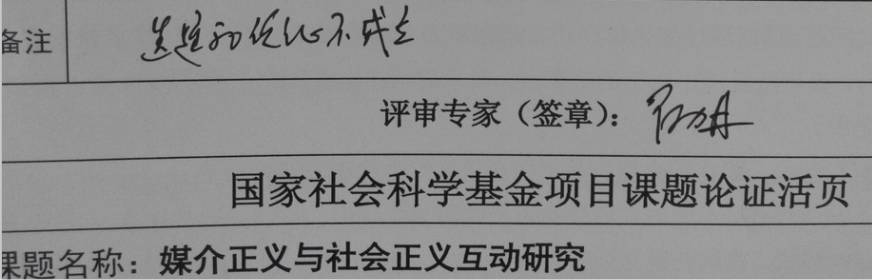 备注 选题和论证不成立
评审专家（签章）：
国家社会科学基金项目课题论证活页
课题名称：媒介正义与社会正义互动研究